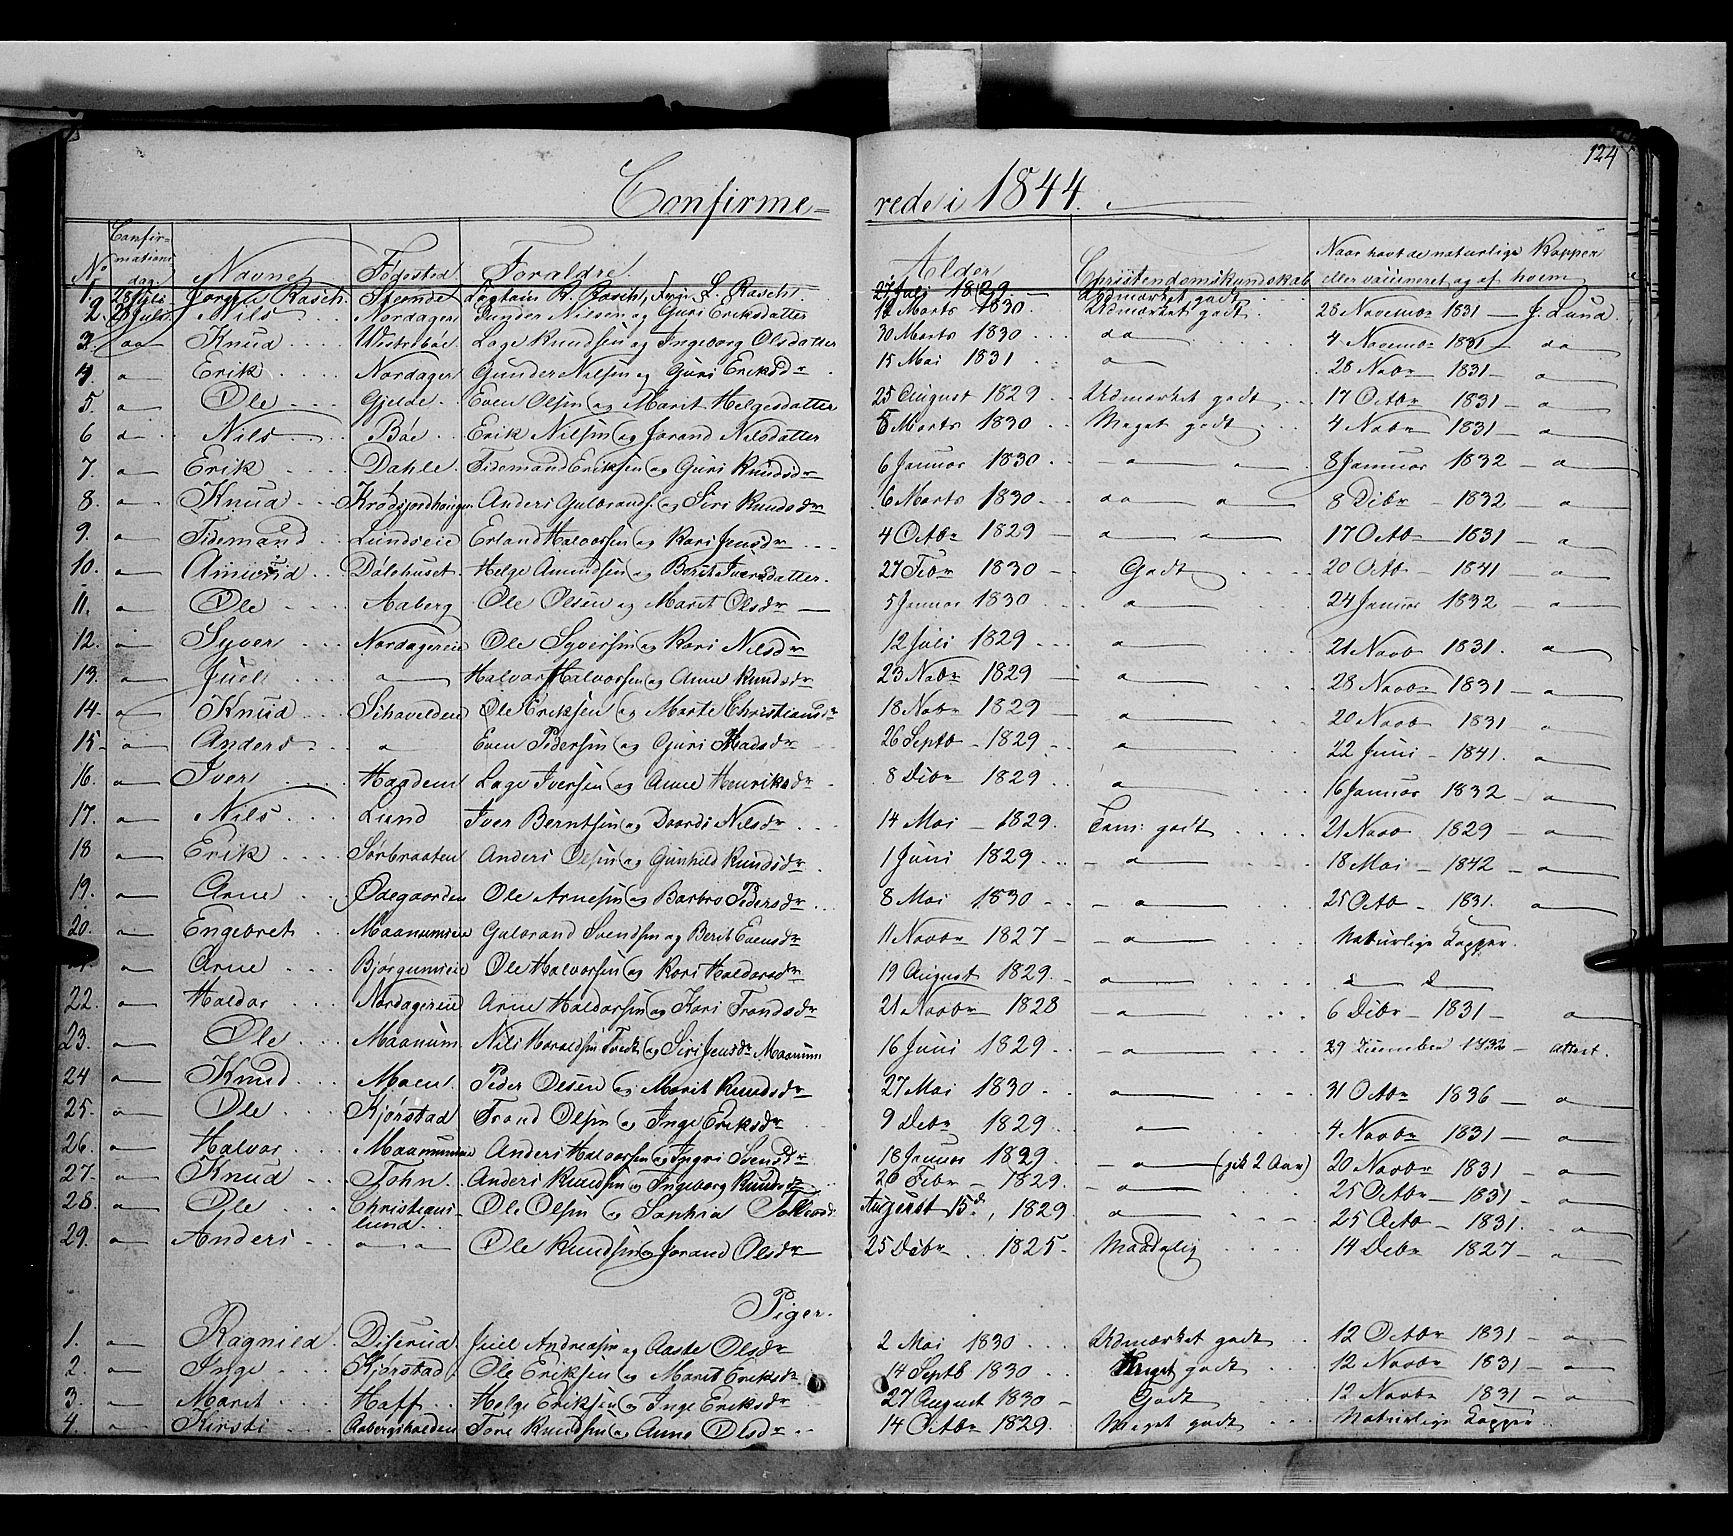 124
Confirme= rede i 1844.
No Confirmations dag. Navne Fødested Foraldre. Alder Christendomskundskab Naar havt de naturlige Kopper eller vaccineret og af hvem
1. 28 Juli Jørgen Rasch. Stemde Captain R. Rasch, 27 Juli 1829. Udmærket godt
2. 28 Juli Nils Nordager Gunder Nilsen og Guri Eriksdatter 12 Marts 1830. Udmærket godt. 28 Novembr 1831 — J. Lund.
3. aa Knud Vestrebøe Lage Knudsen og Ingeborg Olsdatter 30 Marts 1830 aa 4 Novembr 1831 aa
4. a Erik Nordager Gunder Nilsen og Guri Eriksdr 15 Mai 1831 a 28 Novbr 1831 — a
5. a Ole Gjelde. Even Olsen og Marit Helgesdatter 25 August 1829 Udmærket godt 17 Octbr 1831 — a
6 a Nils Bøe Erik Nilsen og Jorand Nilsdatter 8 Marts 1830 Meget godt 4 Novbr 1831 — a
7. a Erik Dahle. Tidemand Eriksen og Guri Knudsdr 6 Januar 1830 — a a 8 Januar 1832 — a
8. a Knud Krødsfjordhougen Anders Gulbrands. og Siri Knudsdr 6 Marts 1830 aa a 8 Dcbr 1832 — a
9. a Tidemand Lundseie Erland Halvorsen og Kari Jensdr 4 Octbr 1829 a a 17 Octb 1831 — a
10. a Amund Dølehuset. Helge Amundsen og Berit Iversdatter. 27 Febr 1830 — Godt 20 Octb 1841 — a
11. a Ole Aaberg Ole Olsen og Marit Olsdr — 5 Januar 1830 a 24 Januar 1832 — a
12. a Syver Nordagereie Ole Syversen og Kari Nilsdr 12 Juli 1829 a 21 Novb 1831. a
13. a Juel a Halvor Halvorsen og Anne Knudsdr 23 Novbr 1829 — a 28 Novbr 1831 — a
14. a Knud Ole Eriksen og Marte Christiansdr 18 Novbr 1829 — a 20 Novb 1831 a
15. a Anders a Even Pedersen og Guri Madsdr 26 Septb — 1829 a 22 Juni — 1841. a
16. a Iver Hagden Lage Iversen og Anne Henriksdr 8 Dcbr 1829 a 16 Januar 1832 — a
17. a Nils Lund Iver Berntsen og Daardi Nilsdr 14 Mai — 1829. Tem: godt 21 Novb 1829 — a
18 a Erik Sørbraaten Anders Olsen og Gunhild Knudsdr 1 Juni 1829 — a 18 Mai — 1842 — a
19. a Arne Ødegaarden Ole Arnesen og Barbro Pedersdr 8 Mai 1830 — a 25 Octb — 1831. a
20. a Engebret Maanumeie Gulbrand Svendsen og Berit Evensdr 11 Novbr 1827 — a Naturlige Kopper.
21. a Arne Bjørgumeie Ole Halvorsen og Kari Haldorsdr 19 August 1829. a a a
22. a Haldor Nordagereie Arne Haldorsen og Kari Trondsdr 21 Novbr 1828 — a 6 Dcbr — 1831 — a
23. a Ole Maanum Nils Haraldsen og Siri Jensdr Maanum 16 Juni 1829. — a 29 December 1832 — attest.
24 a Knud Moen. Peder Olsen og Marit Knudsdr 27 Mai 1830 a 31 Octbr 1836 — a
25. a Ole Kjørstad Trond Olsen og Inge Eriksdr 9 Debr 1829 a 4 Novbr 1831 — a
26. a Halvor Maanumeie Anders Halvorsen og Ingri Svensdr 18 Januar 1829. — a (gik 2 Aar) 20 Novbr 1831 — a
27. a Knud Tohn. Anders Knudsen og Ingeborg Knudsdr 26 Febr — 1829. a 25 Octbr — 1831 — a
28. a Ole Christianslund Ole Olsen og Sophia August 15d., 1829 a 25 Octb — 1831. a
29. a Anders a a Ole Knudsen og Jorand Olsdr 25 Dcbr 1825. Maadelig 14 Debr 1827 — a
Piger.
1. a Ragnild Diserud. Juel Andreasen og Aaste Olsdr 2 Mai 1830 Udmærket godt 12 Octbr 1831 — a
2. a Inge Kjørstad Ole Eriksen og Marit Eriksdr 14 Septb 1830 Meget godt 12 Novbr 1831 — a
3. a Marit Haff Helge Eriksen og Inge Eriksdr 27 August 1830 — Godt 12 Novbr 1831 — a
4. a Kirsti Aabergshalden Tore Knudsen og Anne Olsdr 14 Octbr 1829. Meget godt Naturlige Kopper